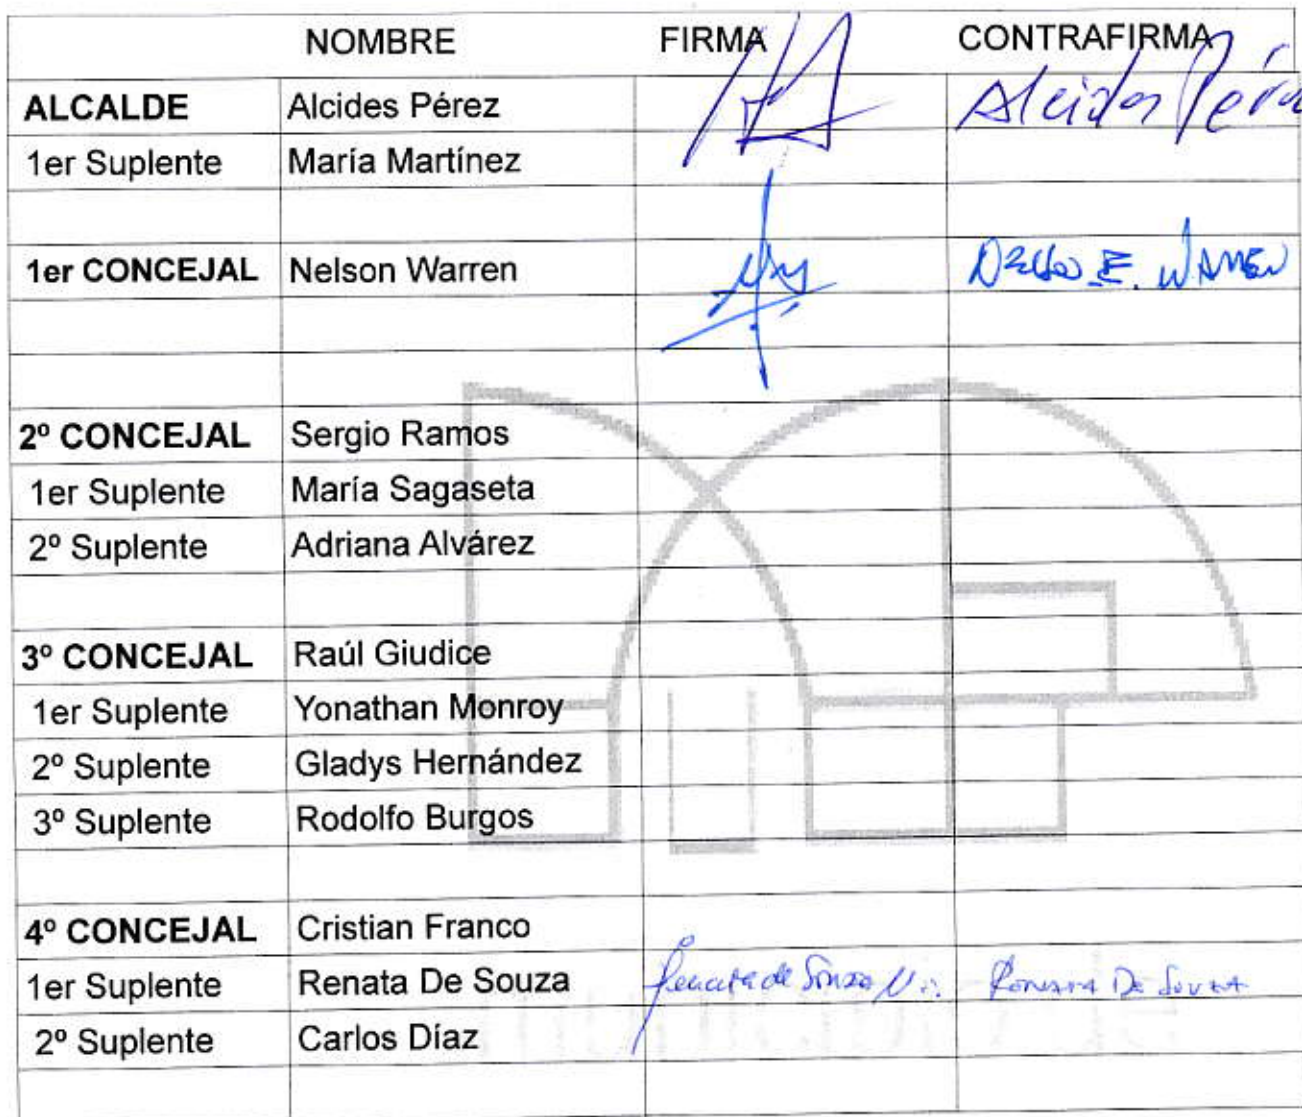 NOMBRE FIRMA CONTRAFIRMA
ALCALDE Alcides Pérez Alcides Pérez
1er Suplente María Martínez
1er CONCEJAL Nelson Warren E. Warren
2º CONCEJAL Sergio Ramos
1er Suplente María Sagaseta
2º Suplente Adriana Alvárez
3º CONCEJAL Raúl Giudice
1er Suplente Yonathan Monroy
2º Suplente Gladys Hernández
3º Suplente Rodolfo Burgos
4º CONCEJAL Cristian Franco
1er Suplente Renata De Souza Renata de Souza Renata De Souza
2º Suplente Carlos Díaz